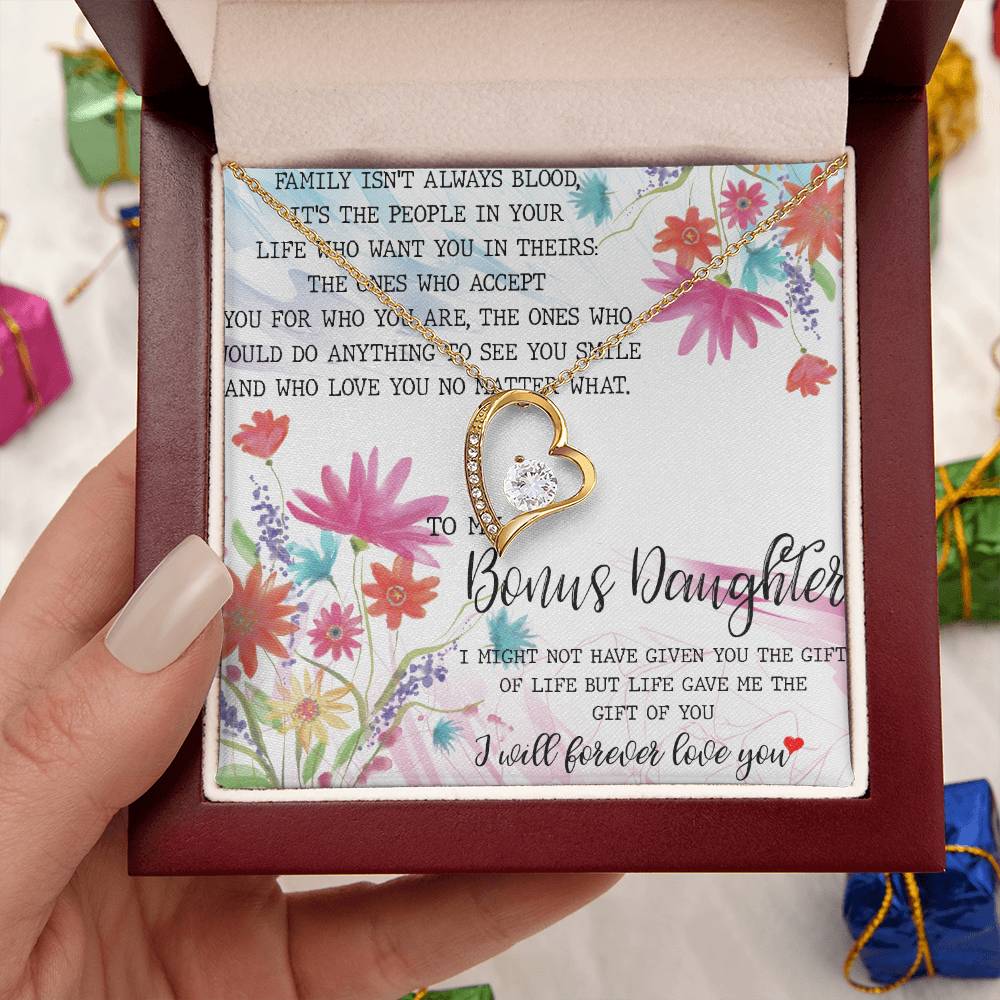 FAMILY ISN'T ALWAYS BLOOD,
IT'S THE PEOPLE IN YOUR
LIFE WHO WANT YOU IN THEIRS:
THE ONES WHO ACCEPT
YOU FOR WHO YOU ARE, THE ONES WHO
WOULD DO ANYTHING TO SEE YOU SMILE
AND WHO LOVE YOU NO MATTER WHAT.
TO MY
Bonus Daughter
I MIGHT NOT HAVE GIVEN YOU THE GIFT
OF LIFE BUT LIFE GAVE ME THE
GIFT OF YOU
I will forever love you